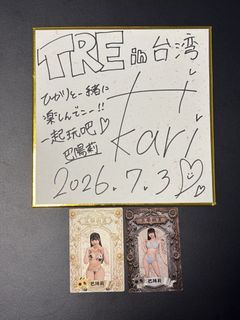 TRE in 台湾
ひかりと一緒に
楽しんでこー!!
一起玩吧♡
巴陽莉
Hikari
2026.7.3
巴陽莉
巴陽莉